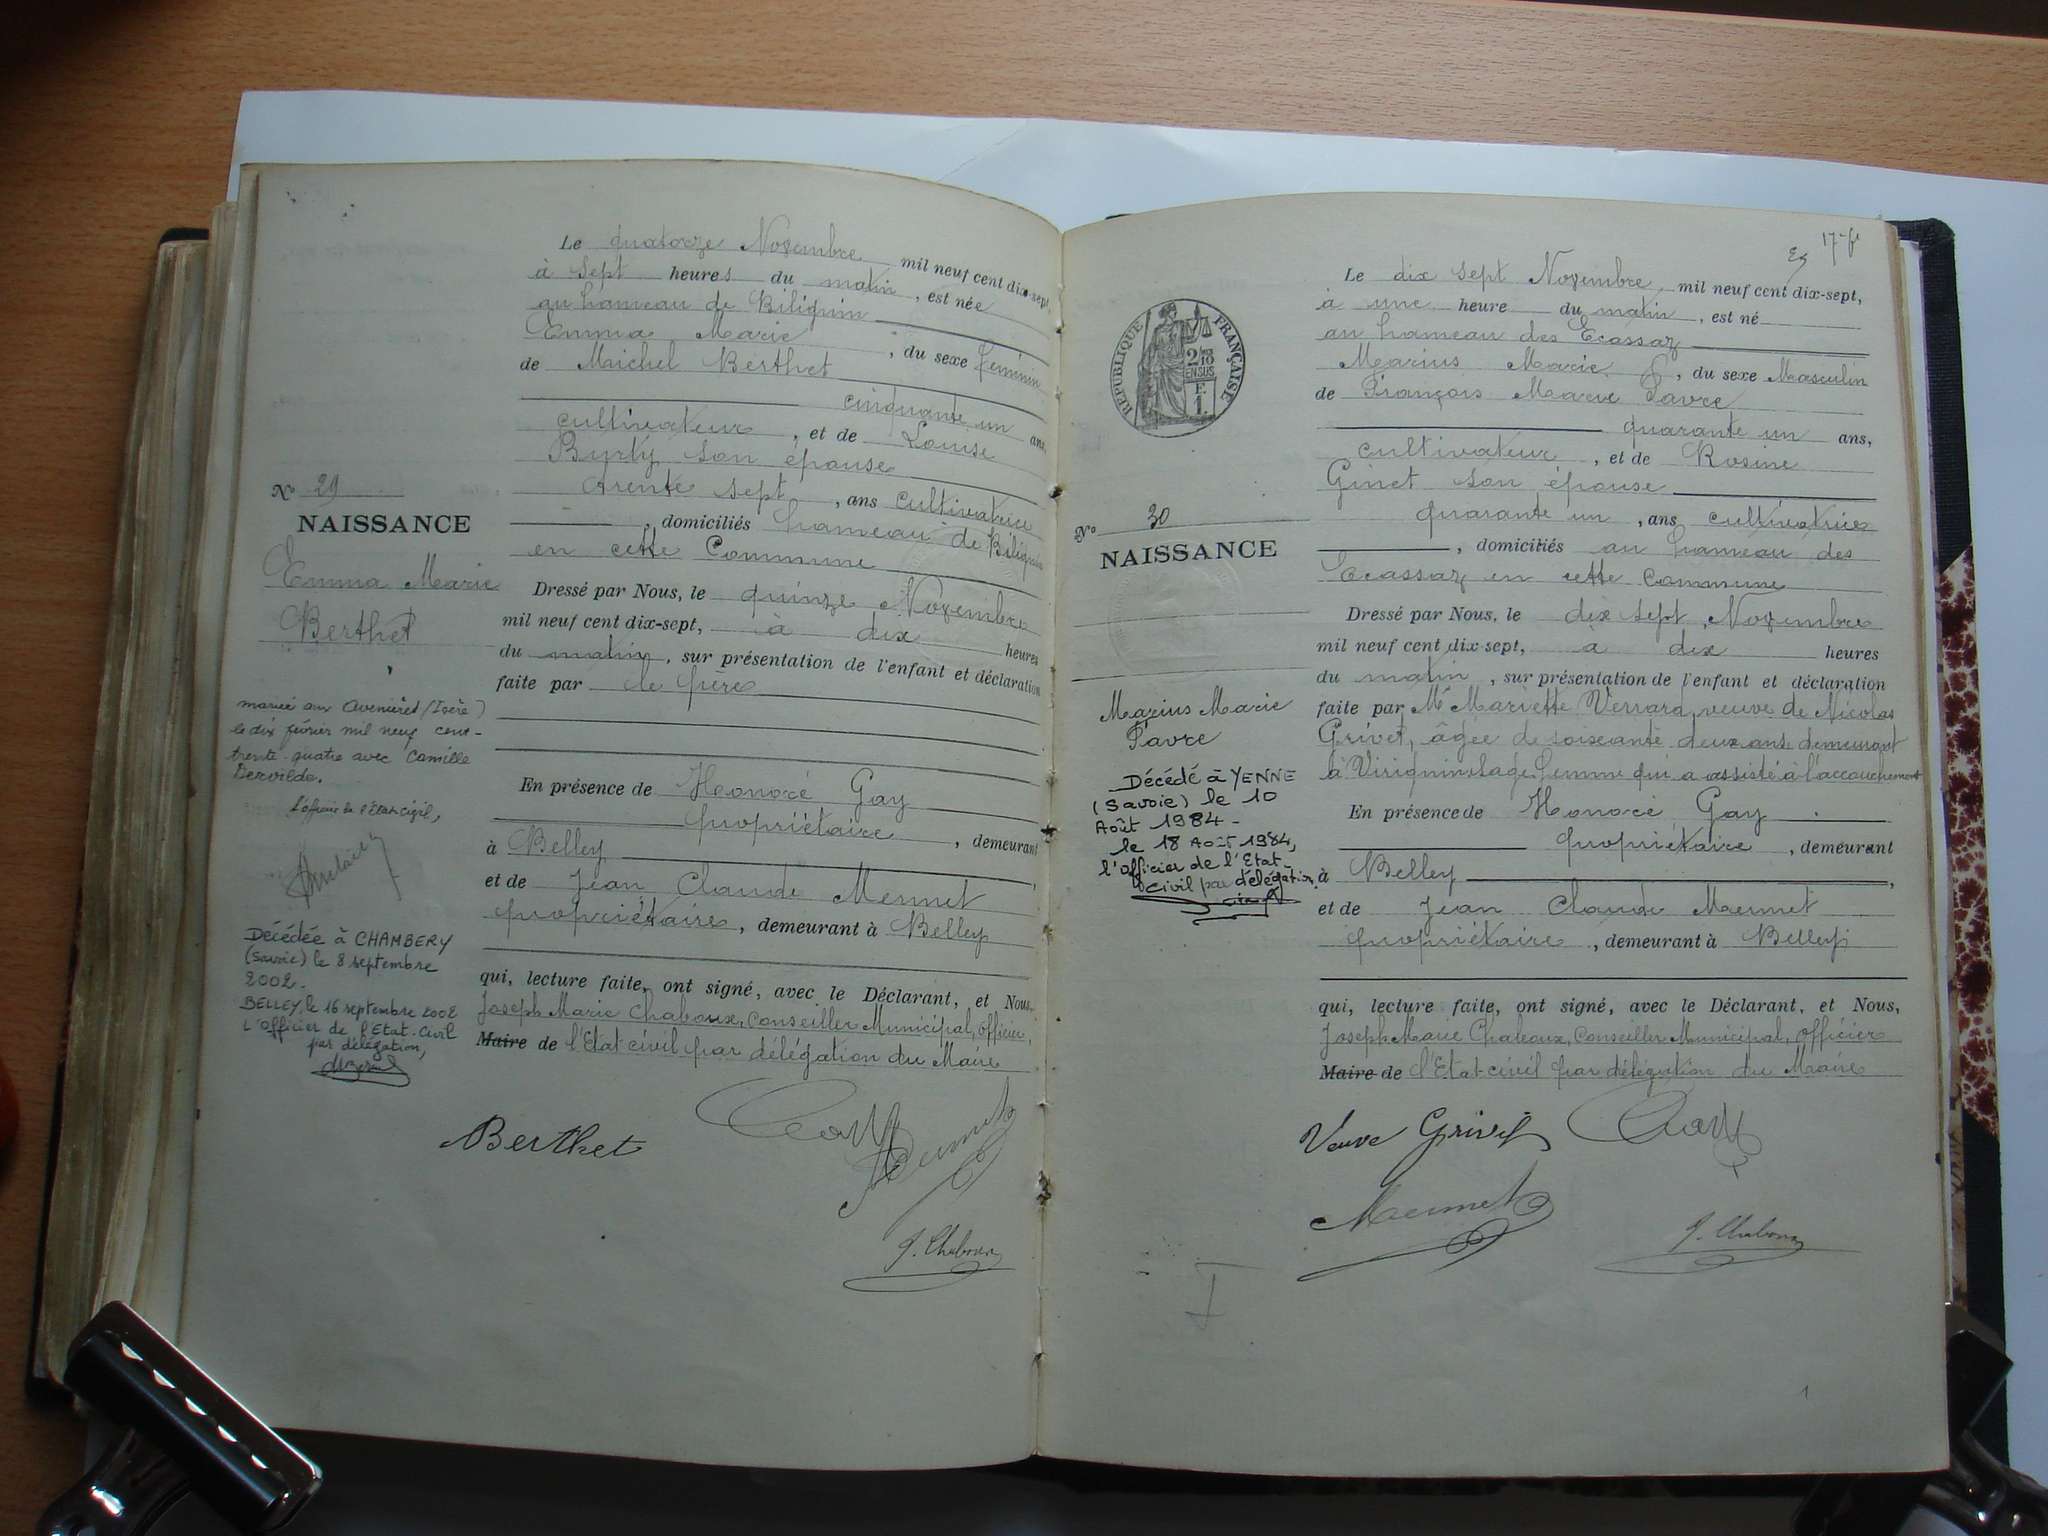 Le quatorze Novembre mil neuf cent dix-sept
à sept heures du matin, est née
au hameau de Bilignin
Emma Marie, du sexe féminin
de Michel Berthet
cinquante un ans
cultivateur, et de Louise
Burty son épouse
trente sept, ans cultivatrice
, domiciliés hameau de Bilignin
en cette Commune
Dressé par Nous, le quinze Novembre
mil neuf cent dix-sept, à dix heures
du matin, sur présentation de l'enfant et déclaration
faite par le père
En présence de Honoré Gay
propriétaire, demeurant
à Belley,
et de Jean Claude Mermet
propriétaire, demeurant à Belley
qui, lecture faite, ont signé, avec le Déclarant, et Nous,
Joseph Marie Chaboux, Conseiller Municipal, Officier
Maire de l'Etat-civil par délégation du Maire
Berthet
Gay
Mermet
J. Chaboux
No 29
NAISSANCE
Emma Marie
Berthet
mariée aux Avenières (Isère)
le dix février mil neuf cent-
trente-quatre avec Camille
Dervilde.
L'officier de l'état civil,
Décédée à CHAMBERY
(Savoie) le 8 septembre
2002.
BELLEY, le 16 septembre 2002
L'officier de l'Etat-Civil
par délégation,
17
Le dix sept Novembre mil neuf cent dix-sept,
à une heure du matin, est né
au hameau des Ecassaz
Marius Marie, du sexe Masculin
de François Marie Favre
quarante un ans,
cultivateur, et de Rosine
Ginet son épouse
quarante un, ans cultivatrice
, domiciliés au hameau des
Ecassaz en cette Commune
Dressé par Nous, le dix sept Novembre
mil neuf cent dix-sept, à dix heures
du matin, sur présentation de l'enfant et déclaration
faite par Me Mariette Verrard, veuve de Nicolas
Grivet, âgée de soixante deux ans demeurant
à Virignin, sage femme qui a assisté à l'accouchement
En présence de Honoré Gay
propriétaire, demeurant
à Belley,
et de Jean Claude Mermet
propriétaire, demeurant à Belley
qui, lecture faite, ont signé, avec le Déclarant, et Nous,
Joseph Marie Chaboux, Conseiller Municipal, Officier
Maire de l'Etat-civil par délégation du Maire
Veuve Grivet
Gay
Mermet
J. Chaboux
RÉPUBLIQUE FRANÇAISE
2/10
EN SUS
F
1.
No 30
NAISSANCE
Marius Marie
Favre
Décédé à YENNE
(Savoie) le 10
Août 1984-
le 18 Août 1984,
l'Officier de l'Etat-
Civil par délégation.
1